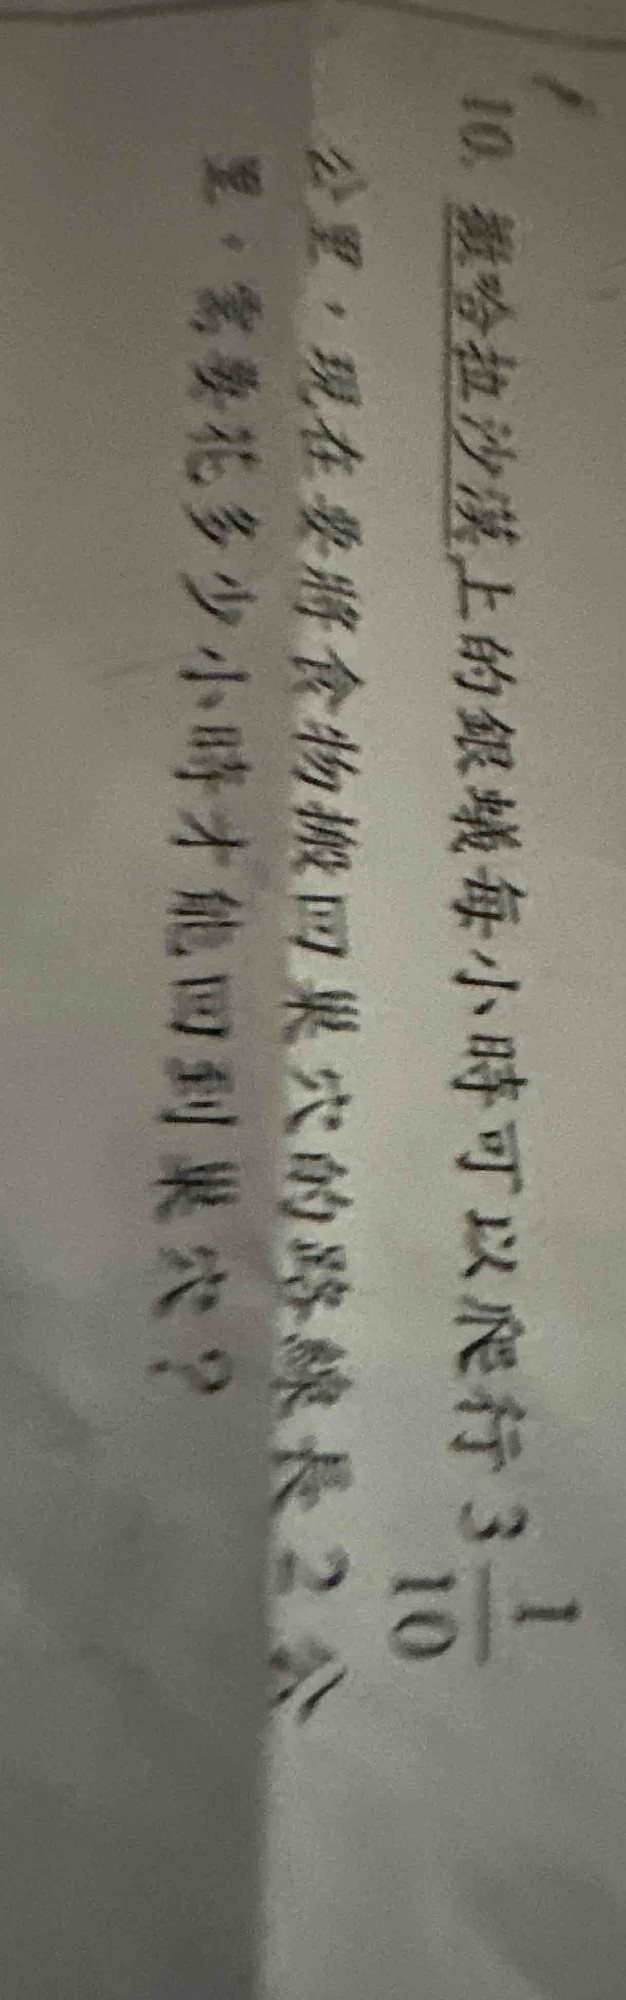 10. 撒哈拉沙漠上的銀蟻每小時可以爬行 3 1/10
公里，現在要將食物搬回巢穴的路線長 2 公
里，需要花多少小時才能回到巢穴？